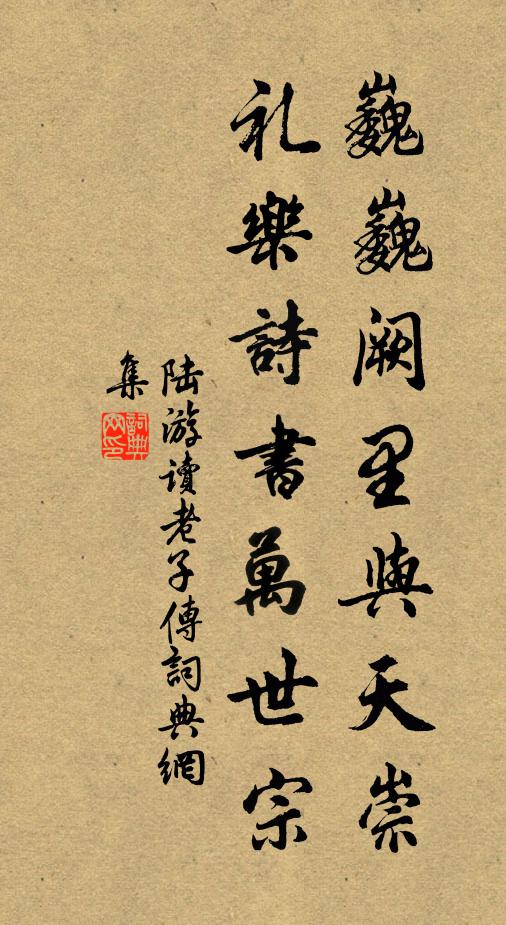 巍巍阙里與天崇
礼樂詩書萬世宗
陆游讀老子傳詞典網
集
詞典網印